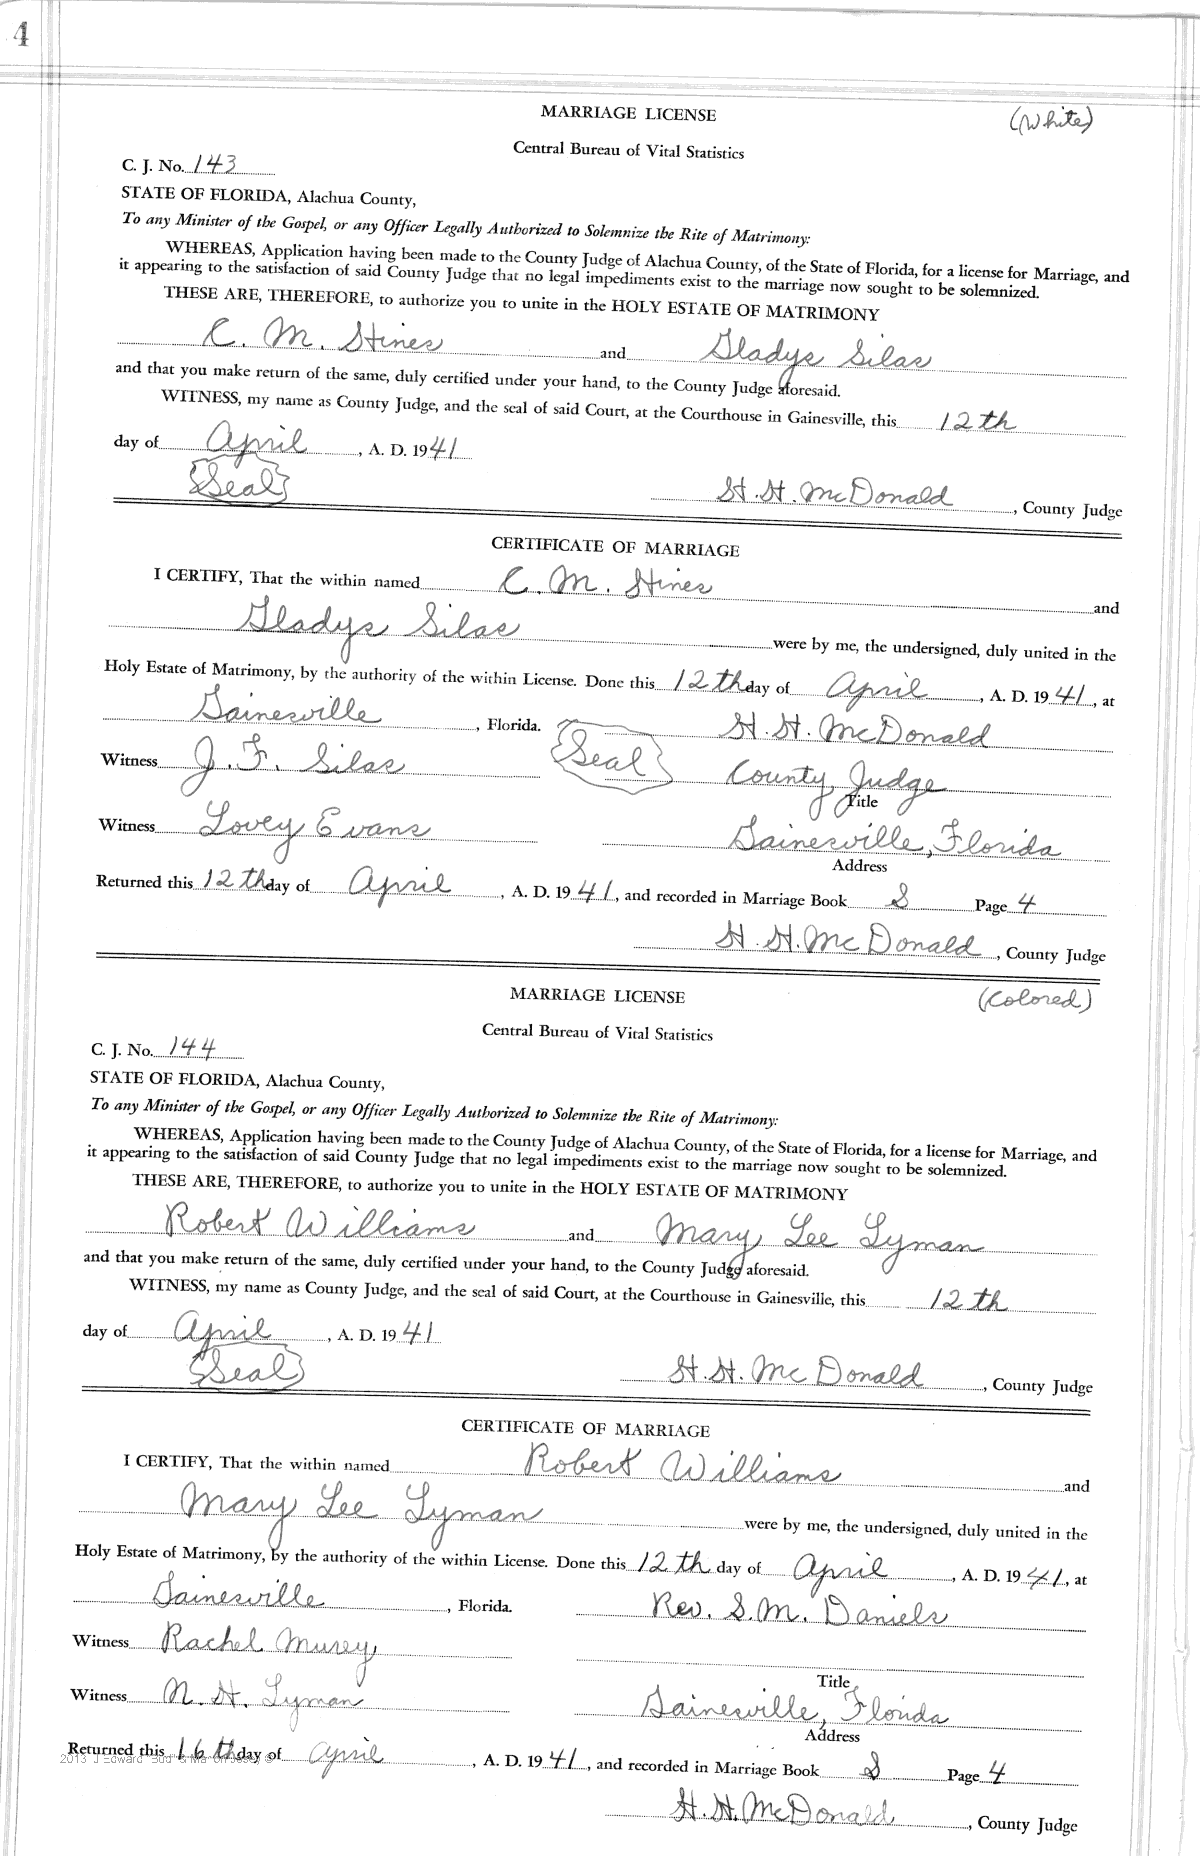 4
MARRIAGE LICENSE (White)
Central Bureau of Vital Statistics
C. J. No. 143
STATE OF FLORIDA, Alachua County,
To any Minister of the Gospel, or any Officer Legally Authorized to Solemnize the Rite of Matrimony:
WHEREAS, Application having been made to the County Judge of Alachua County, of the State of Florida, for a license for Marriage, and
it appearing to the satisfaction of said County Judge that no legal impediments exist to the marriage now sought to be solemnized.
THESE ARE, THEREFORE, to authorize you to unite in the HOLY ESTATE OF MATRIMONY
C. M. Hines and Gladys Silas
and that you make return of the same, duly certified under your hand, to the County Judge aforesaid.
WITNESS, my name as County Judge, and the seal of said Court, at the Courthouse in Gainesville, this 12th
day of April, A. D. 1941
Seal H. H. McDonald, County Judge
CERTIFICATE OF MARRIAGE
I CERTIFY, That the within named C. M. Hines and
Gladys Silas were by me, the undersigned, duly united in the
Holy Estate of Matrimony, by the authority of the within License. Done this 12th day of April, A. D. 1941, at
Gainesville, Florida. H. H. McDonald
Witness J. F. Silas Seal County Judge
Title
Witness Lovey Evans Gainesville, Florida
Address
Returned this 12th day of April, A. D. 1941, and recorded in Marriage Book S Page 4
H. H. McDonald, County Judge
MARRIAGE LICENSE (Colored)
Central Bureau of Vital Statistics
C. J. No. 144
STATE OF FLORIDA, Alachua County,
To any Minister of the Gospel, or any Officer Legally Authorized to Solemnize the Rite of Matrimony:
WHEREAS, Application having been made to the County Judge of Alachua County, of the State of Florida, for a license for Marriage, and
it appearing to the satisfaction of said County Judge that no legal impediments exist to the marriage now sought to be solemnized.
THESE ARE, THEREFORE, to authorize you to unite in the HOLY ESTATE OF MATRIMONY
Robert Williams and Mary Lee Lyman
and that you make return of the same, duly certified under your hand, to the County Judge aforesaid.
WITNESS, my name as County Judge, and the seal of said Court, at the Courthouse in Gainesville, this 12th
day of April, A. D. 1941
Seal H. H. McDonald, County Judge
CERTIFICATE OF MARRIAGE
I CERTIFY, That the within named Robert Williams and
Mary Lee Lyman were by me, the undersigned, duly united in the
Holy Estate of Matrimony, by the authority of the within License. Done this 12th day of April, A. D. 1941, at
Gainesville, Florida. Rev. S. M. Daniels
Witness Rachel
Title
Witness N. H. Lyman Gainesville, Florida
Address
Returned this 16th day of April, A. D. 1941, and recorded in Marriage Book S Page 4
H. H. McDonald, County Judge